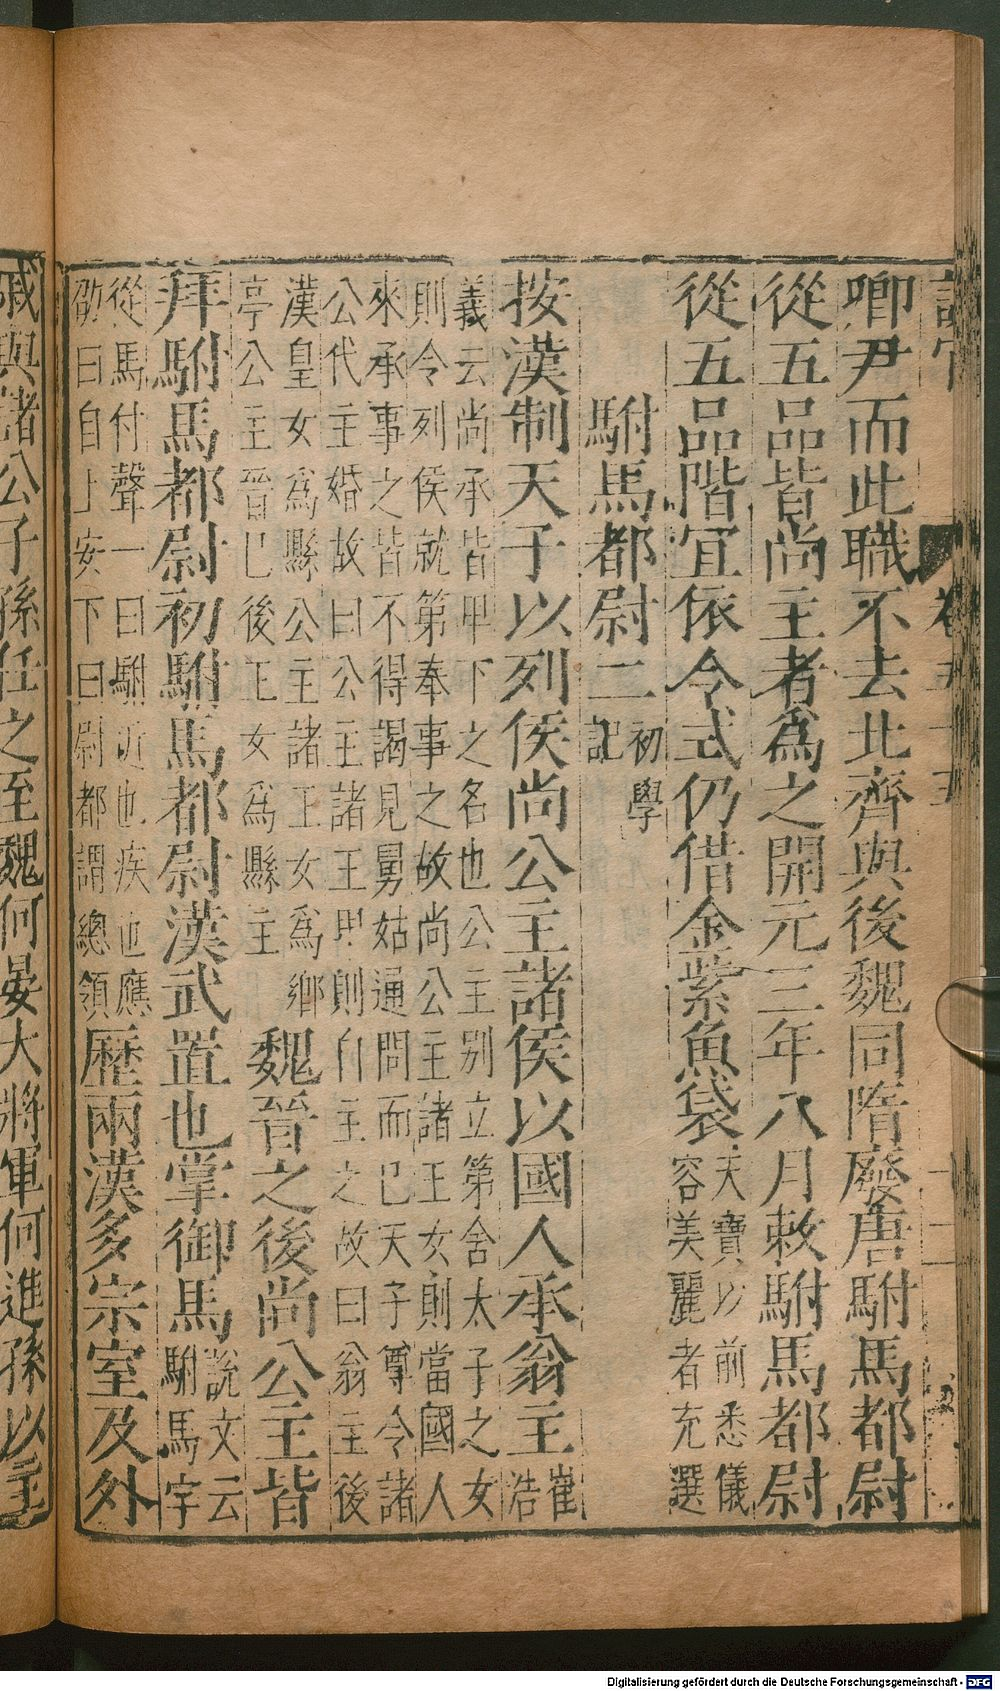 卿尹而此職不去北齊與後魏同隋廢唐駙馬都尉
從五品皆尚主者為之開元三年八月敕駙馬都尉
從五品階宜依令式仍借金紫魚袋天寶以前悉儀
容美麗者充選
駙馬都尉二初學
記
按漢制天子以列侯尚公主諸侯以國人承翁主崔
浩
義云尚承皆甲下之名也公主別立第舍太子之女
則令列侯就第奉事之故尚公主諸王女則當國人
來承事之皆不得謁見舅姑通問而已天子尊令諸
公代主婚故曰公主諸王即則自主之故曰翁主後
漢皇女為縣公主諸王女為鄉
亭公主晉已後王女為縣主
魏晉之後尚公主皆
拜駙馬都尉初駙馬都尉漢武置也掌御馬說文云
駙馬字
從馬付聲一曰駙近也疾也應
劭曰自上安下曰尉都謂總領
歷兩漢多宗室及外
戚與諸公子孫任之至魏何晏大將軍何進孫以主
Digitalisierung gefördert durch die Deutsche Forschungsgemeinschaft - DFG